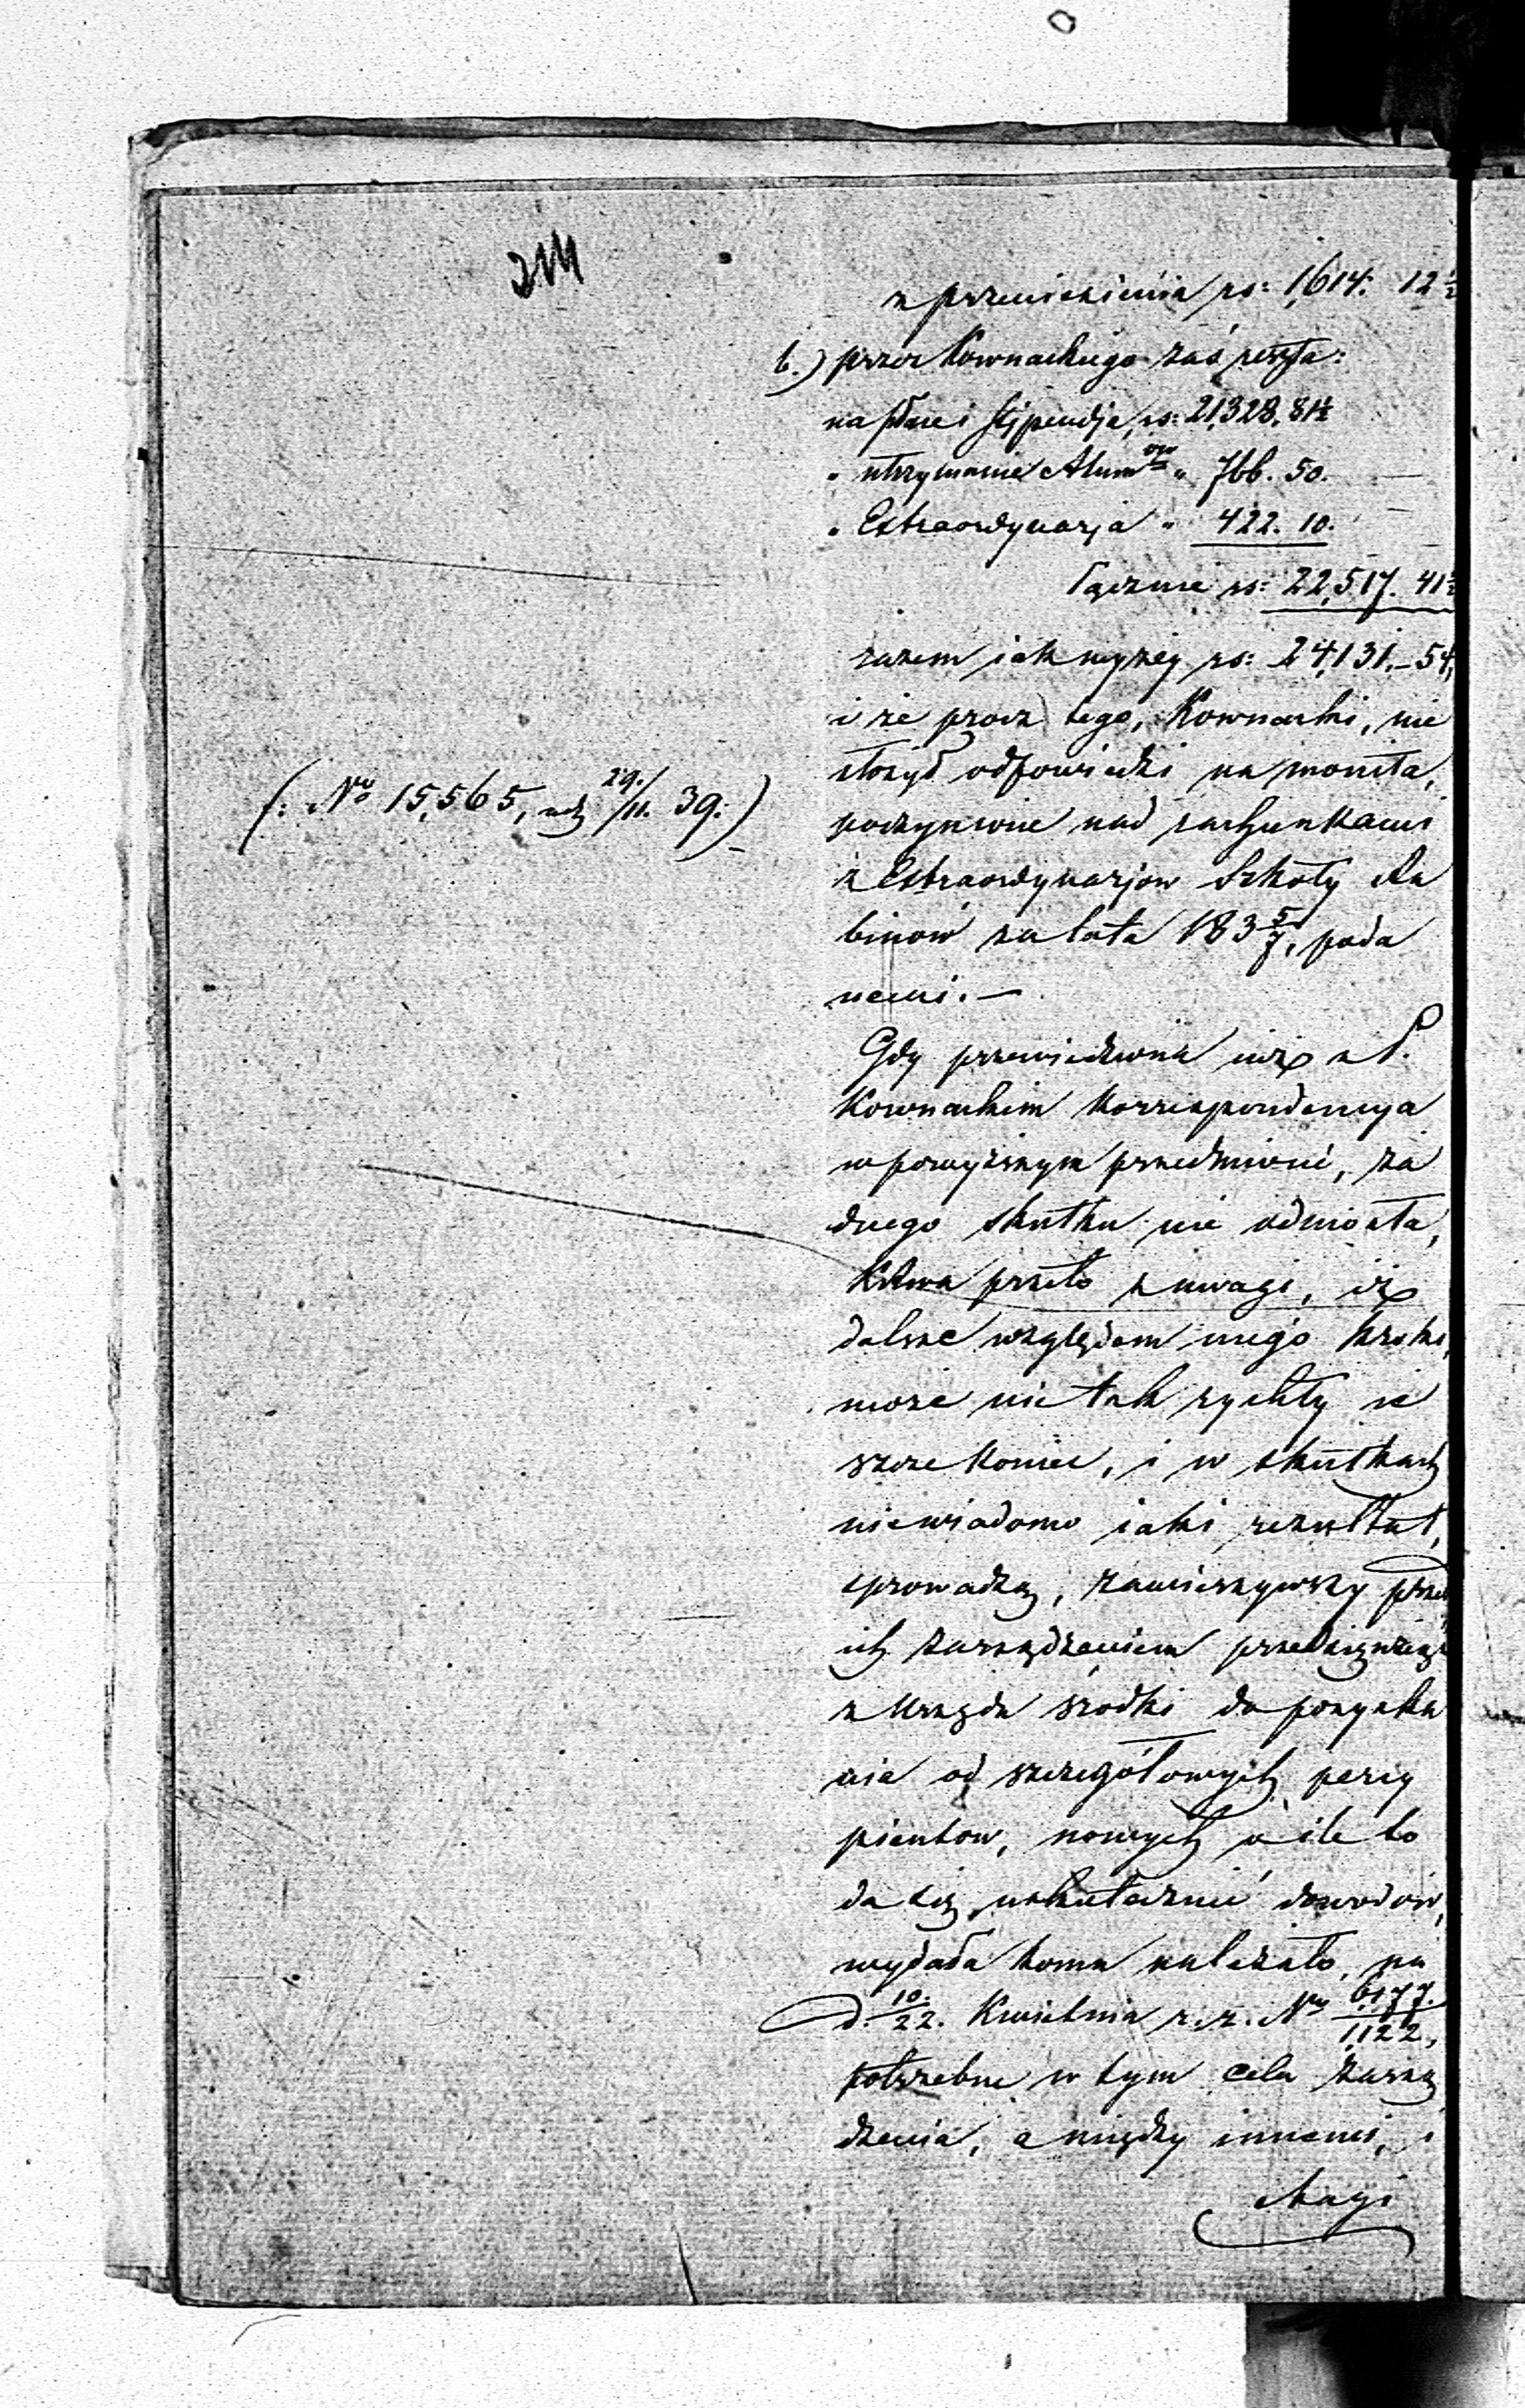 214
z przeniesienia rs: 1,614. 12 1/2
b.) przez Kownackiego zaś reszta:
na płace i stypendja, rs: 21,328. 81 1/2
" utrzymanie Alumnów " 766. 50.
" Extraordynarja " 422. 10.
łącznie rs: 22,517. 41 1/2
razem iak wyżey rs: 24,131. 54,
i że procz tego, Kownacki, nie
złożył odpowiedzi na monita,
(: No 15,565, 29/11. 39:)
poczynione nad rachunkami
z Extraordynarjow Szkoły Ra
binów za lata 183 5/7, poda
nemi. —
Gdy przewiedziona iuż z P.
Kownackim Korrespondencya
w powyższym przedmiocie, ża
dnego skutku nie odniosła,
przeto z uwagi, iż
dalsze względem niego kroki,
może nie tak rychły ie
szcze koniec, i w skutkach
niewiadomo iaki rezultat,
sprowadzą, zamierzywszy przed
ich zarządzeniem przedsięwziąść
z Urzędu srodki do pozyska
nia od szczegółowych percy
pientow, nowych o ile to
da się uskutecznić dowodów,
wydała komu należało, na
d. 10/22. Kwietnia r. z. No 6177/1122,
potrzebne w tym celu zarzą
dzenia, a między innemi, i
Magi